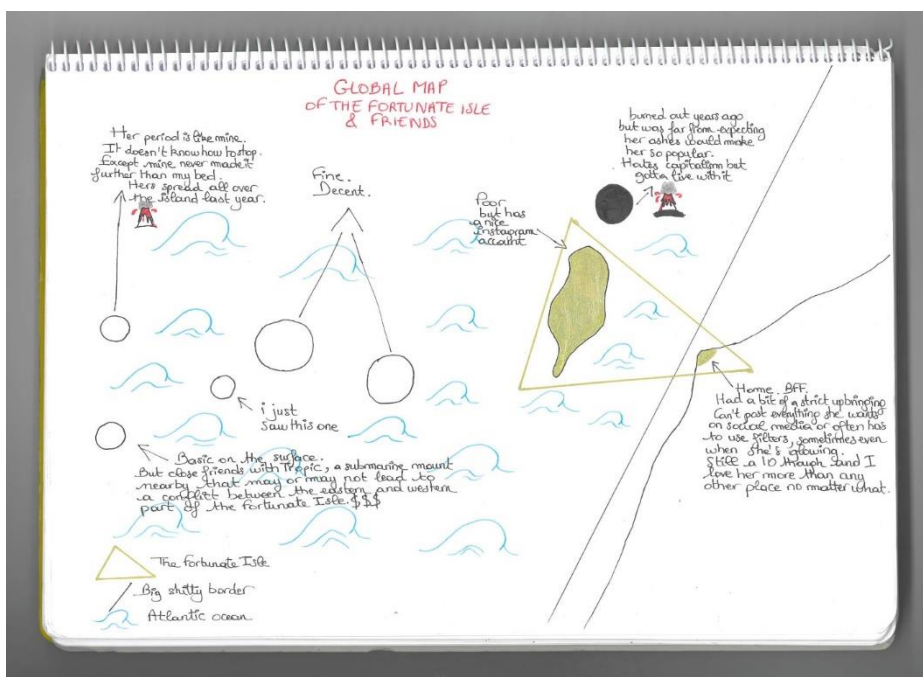 GLOBAL MAP
OF THE FORTUNATE ISLE
& FRIENDS
Her period is like mine.
It doesn't know how to stop.
Except mine never made it
further than my bed.
Hers spread all over
the island last year.
Fine.
Decent.
Poor
but has
a nice
instagram
account
burned out years ago
but was far from expecting
her ashes would make
her so popular.
Hates capitalism but
gotta live with it
i just
saw this one
Basic on the surface.
But close friends with Tropic, a submarine mount
nearby that may or may not lead to
a conflict between the eastern and western
part of the Fortunate Isle.$$$
Home. BFF.
Had a bit of a strict upbringing
Can't post everything she wants
on social media or often has
to use filters, sometimes even
when she's glowing.
Still a 10 though and I
love her more than any
other place no matter what.
The Fortunate Isle
Big shitty border
Atlantic ocean